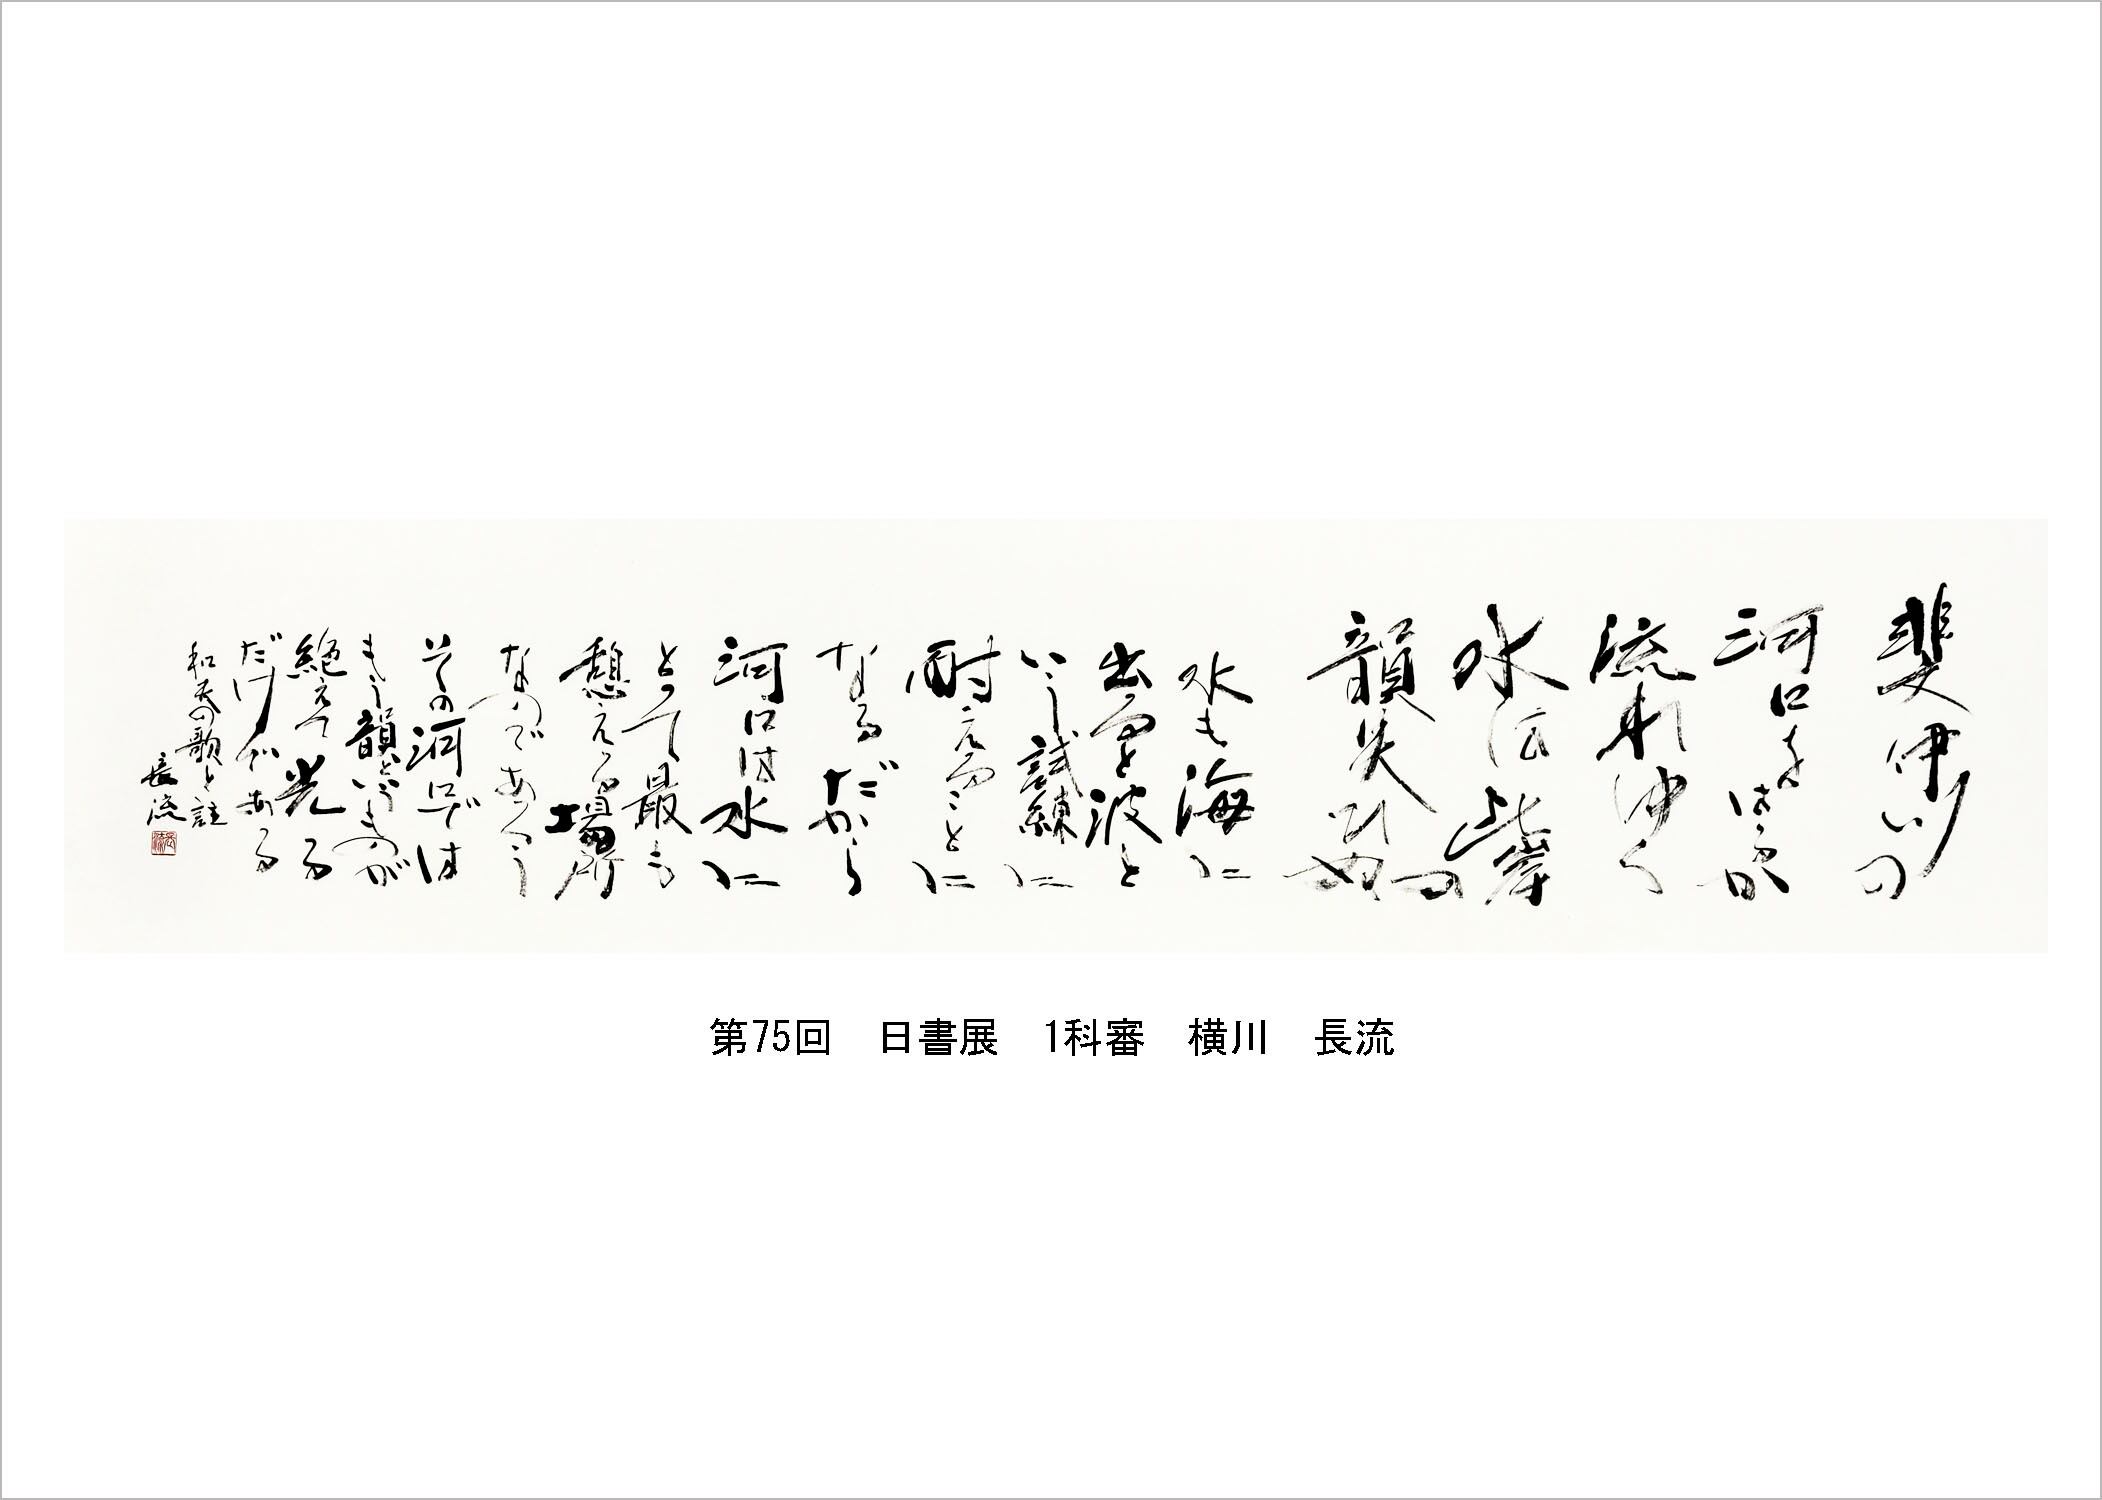 斐伊川の
河口をはるか
流れゆく
水は此岸の
韻失ひぬ
水も海に
出ると波と
いう試練に
耐えることに
なるだから
河口は水に
とって最も
憩える場所
なのであろう
その河口では
もう韻というものが
絶えて光る
だけである
和夫の歌と註
長流
第75回　日書展　1科審　横川　長流